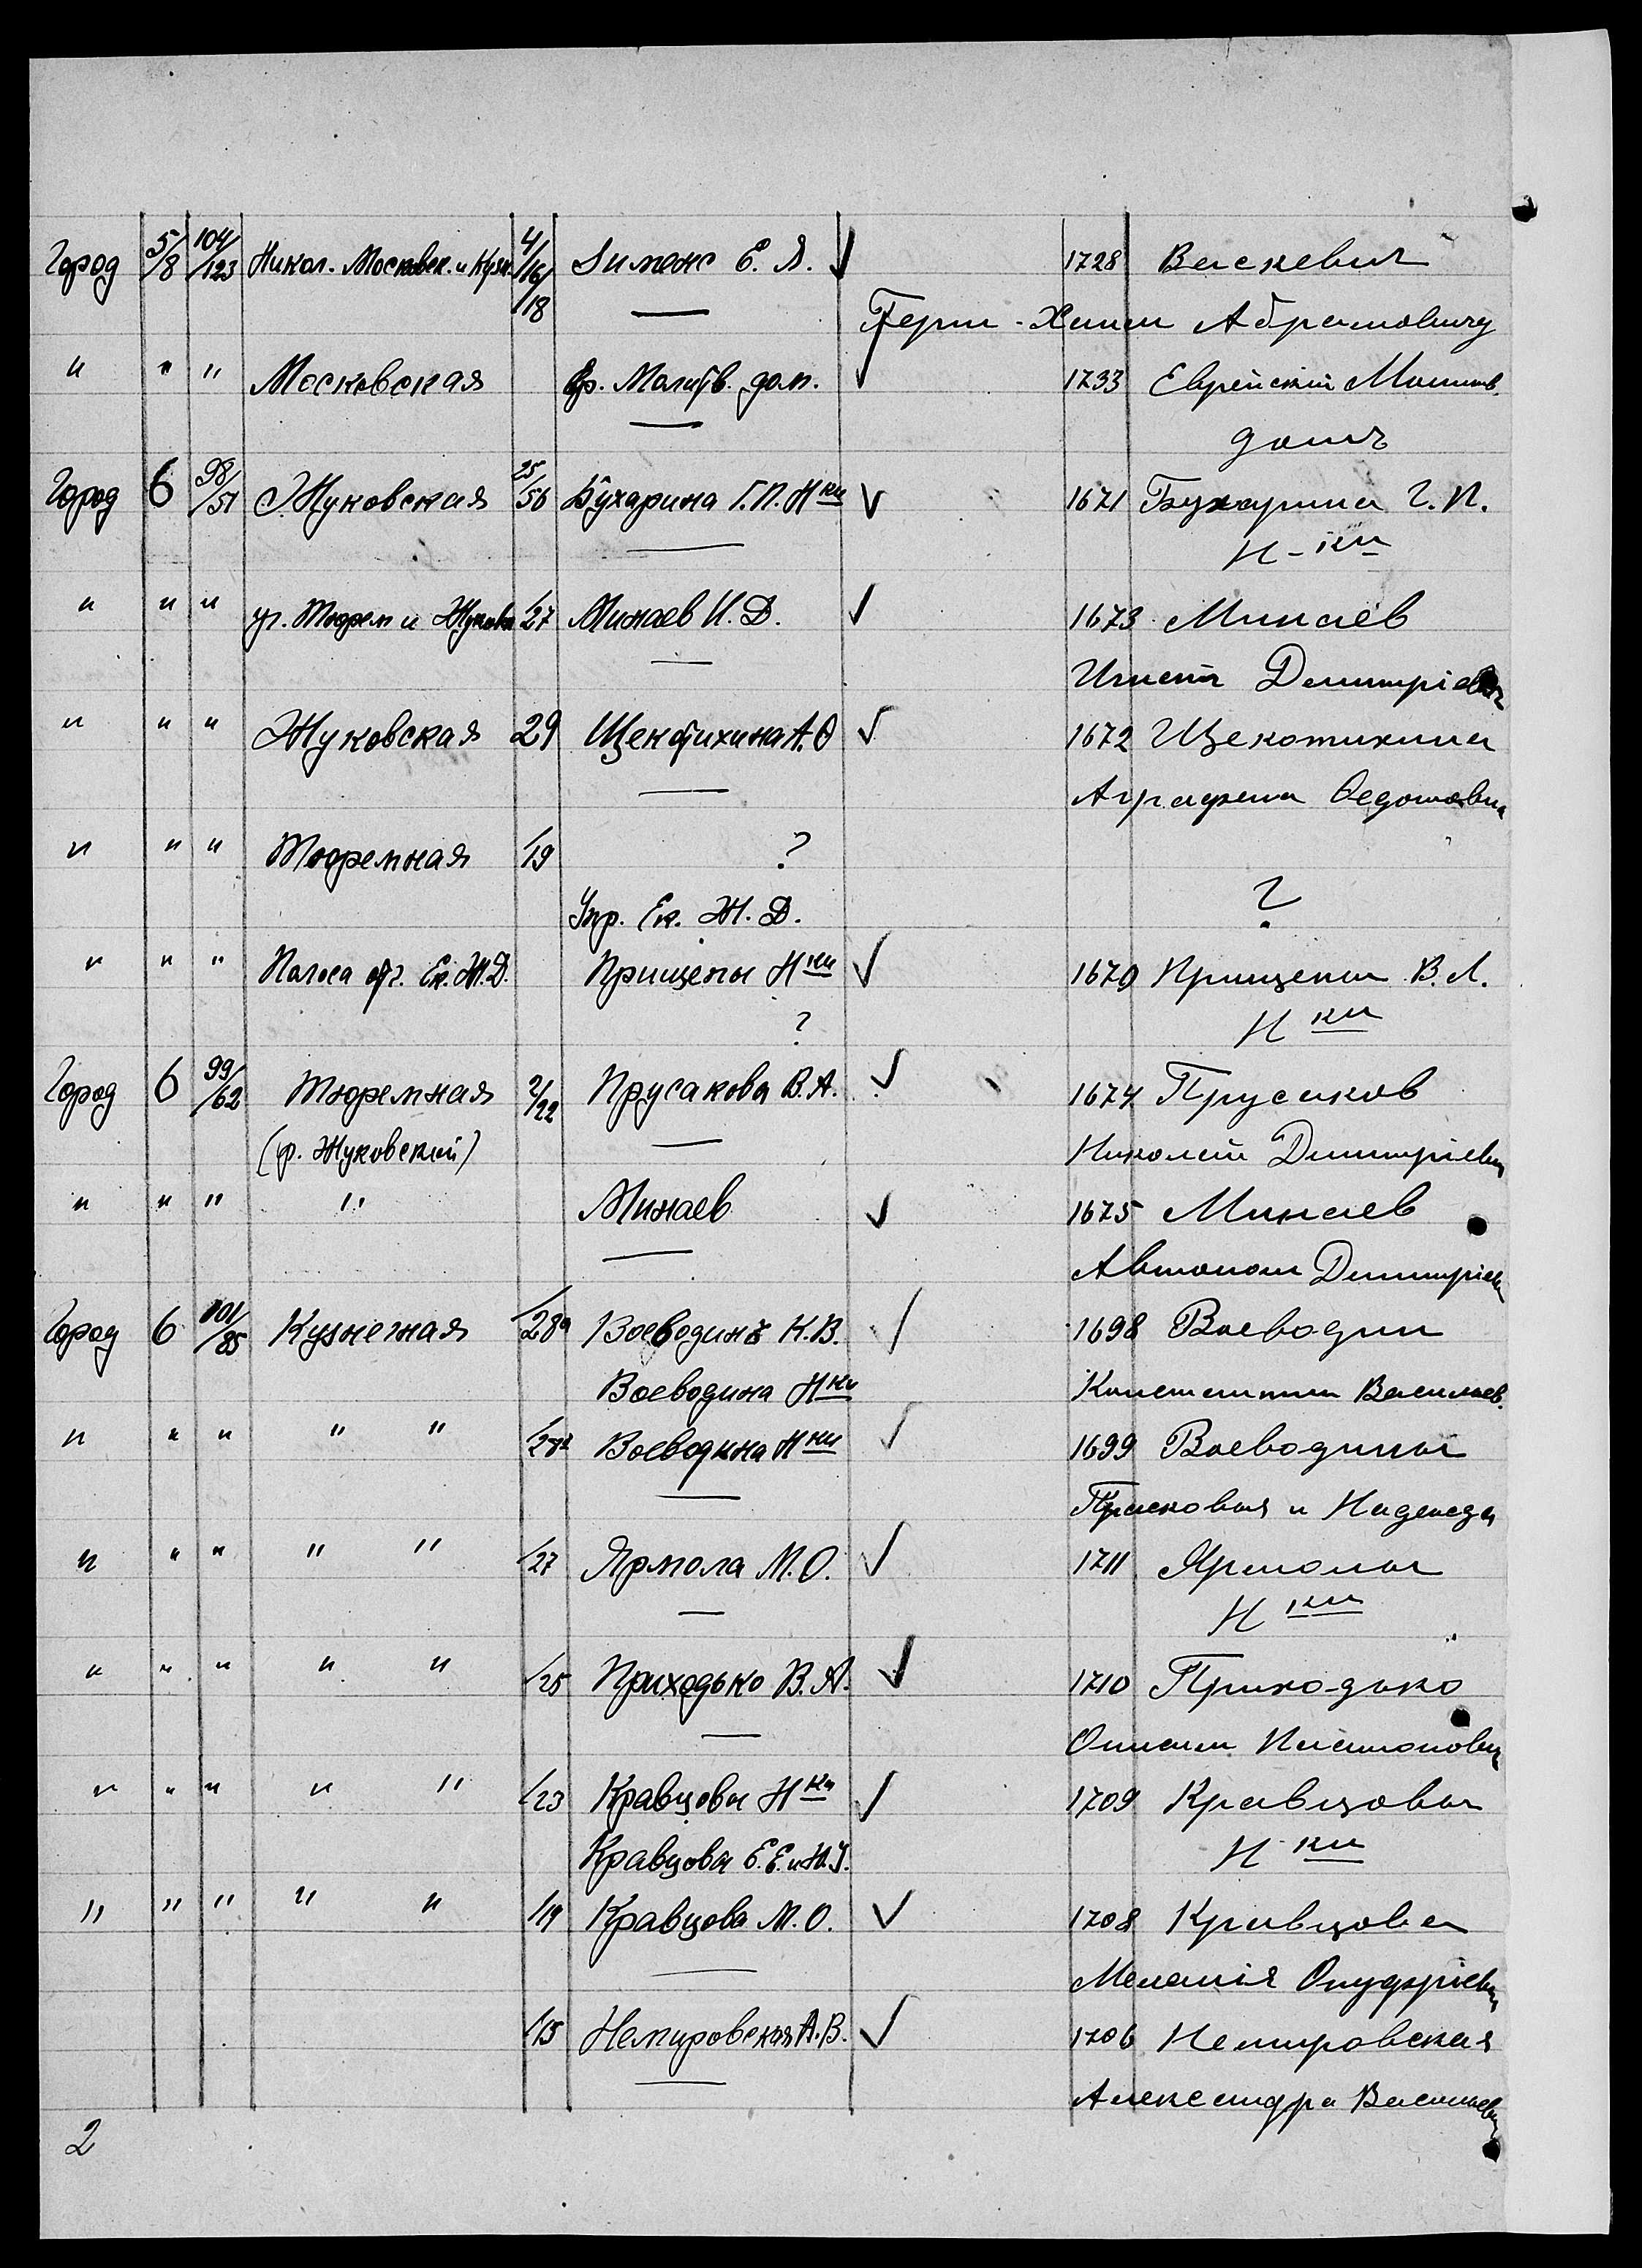 Город 5/8 104/123 Никол. Московск. и Кузн. 4/16/18 Зименс Е. Я. 1728 Васкевич
Герш - Хаим Абрамович
" " " Московская Евр. Молитв. дом. 1733 Еврейскій Молитв.
домъ
Город 6 98/51 Жуковская 25/56 Бухарина Г. П. Нки 1671 Бухарина Г. П.
Н-ки
" " " уг. Тюрем и Жуковск /27 Минаев И. Д. 1673 Минаев
Игнат Димитріевич
" " " Жуковская 29 Щекотихина А. Ѳ 1672 Щекотихина
Аграфена Ѳедотовна
" " " Тюремная /19 ?
Упр. Ек. Ж. Д. ?
" " " Полоса отч. Ек. Ж. Д. Прищепы Нки 1670 Прищепы В. Л.
? Нки
Город 6 99/62 Тюремная 2/22 Прусакова В. А. 1674 Прусаков
(пр. Жуковский) Николай Димитріевич
" " " " Минаев 1675 Минаев
Автоном Димитріев
Город 6 101/85 Кузнечная /28а Воеводинъ К. В. 1698 Воеводин
Воеводина Нки Константин Васильев.
" " " " " Воеводина Нки 1699 Воеводины
Прасковья и Надежда
" " " " " /27 Ярмола М. О. 1711 Ярмолы
Нки
" " " " " /25 Приходько В. А. 1710 Приходько
Платонович
" " " " " /23 Кравцовы Нки 1709 Кравцовы
Кравцовы Е. Е. и Нки
" " " " " /19 Кравцова М. О. 1708 Кравцова
Меланія Онуфріевн
/15 Немировская А. В. 1706 Немировская
Александра Васильевн
2